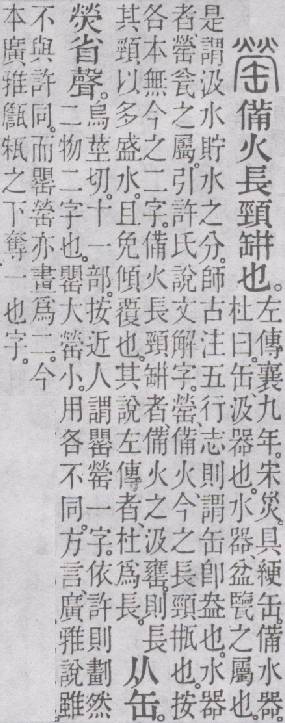 罃備火長頸缾也。左傳襄九年。宋災。具綆缶。備水器。
杜曰。缶、汲器也。水器、盆鑒之屬也。
是謂汲水貯水之分。師古注五行志則謂缶卽盎也。水器
者罃瓮之屬。引許氏說文解字。罃、備火。今之長頸瓶也。按
各本無今之二字。備火長頸缾者備火之汲甕。則長
其頸。以多盛水。且免傾覆也。其說左傳者、杜爲長。从缶。
熒省聲。烏莖切。十一部。按近人謂罌罃一字。依許則劃然
二物二字也。罌大罃小。用各不同。方言、廣雅說雖
不與許同。而罌罃亦書爲二。今
本廣雅之下奪一也字。